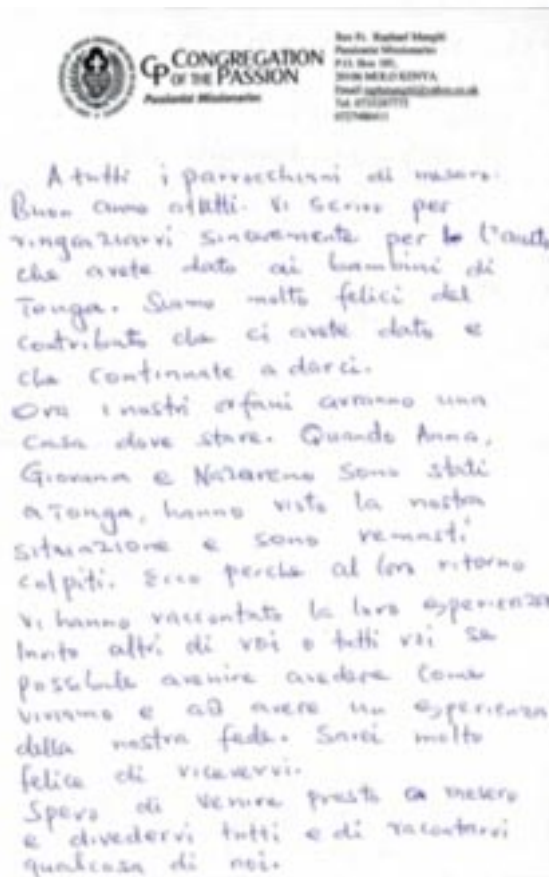 CONGREGATION
CP OF THE PASSION
Passionist Missionaries
Rev Fr. Raphael
Passionist Missionaries
P.O. Box
MOLO KENYA
A tutti i parrocchiani di mesero.
Buon anno a tutti. Vi scrivo per
ringraziarvi sinceramente per l'aiuto
che avete dato ai bambini di
Tonga. Siamo molto felici del
contributo che ci avete dato e
che continuate a darci.
Ora i nostri orfani avranno una
casa dove stare. Quando Anna,
Giovanna e Nazareno sono stati
a Tonga, hanno visto la nostra
situazione e sono remasti
colpiti. Ecco perche al loro ritorno
vi hanno raccontato la loro esperienza
Invito altri di voi o tutti voi se
possibile avenire avedere come
viviamo e ad avere un esperienza
della nostra fede. Sarei molto
felice di ricevervi.
Spero di venire presto a mesero
e divedervi tutti e di racontarvi
qualcosa di noi.